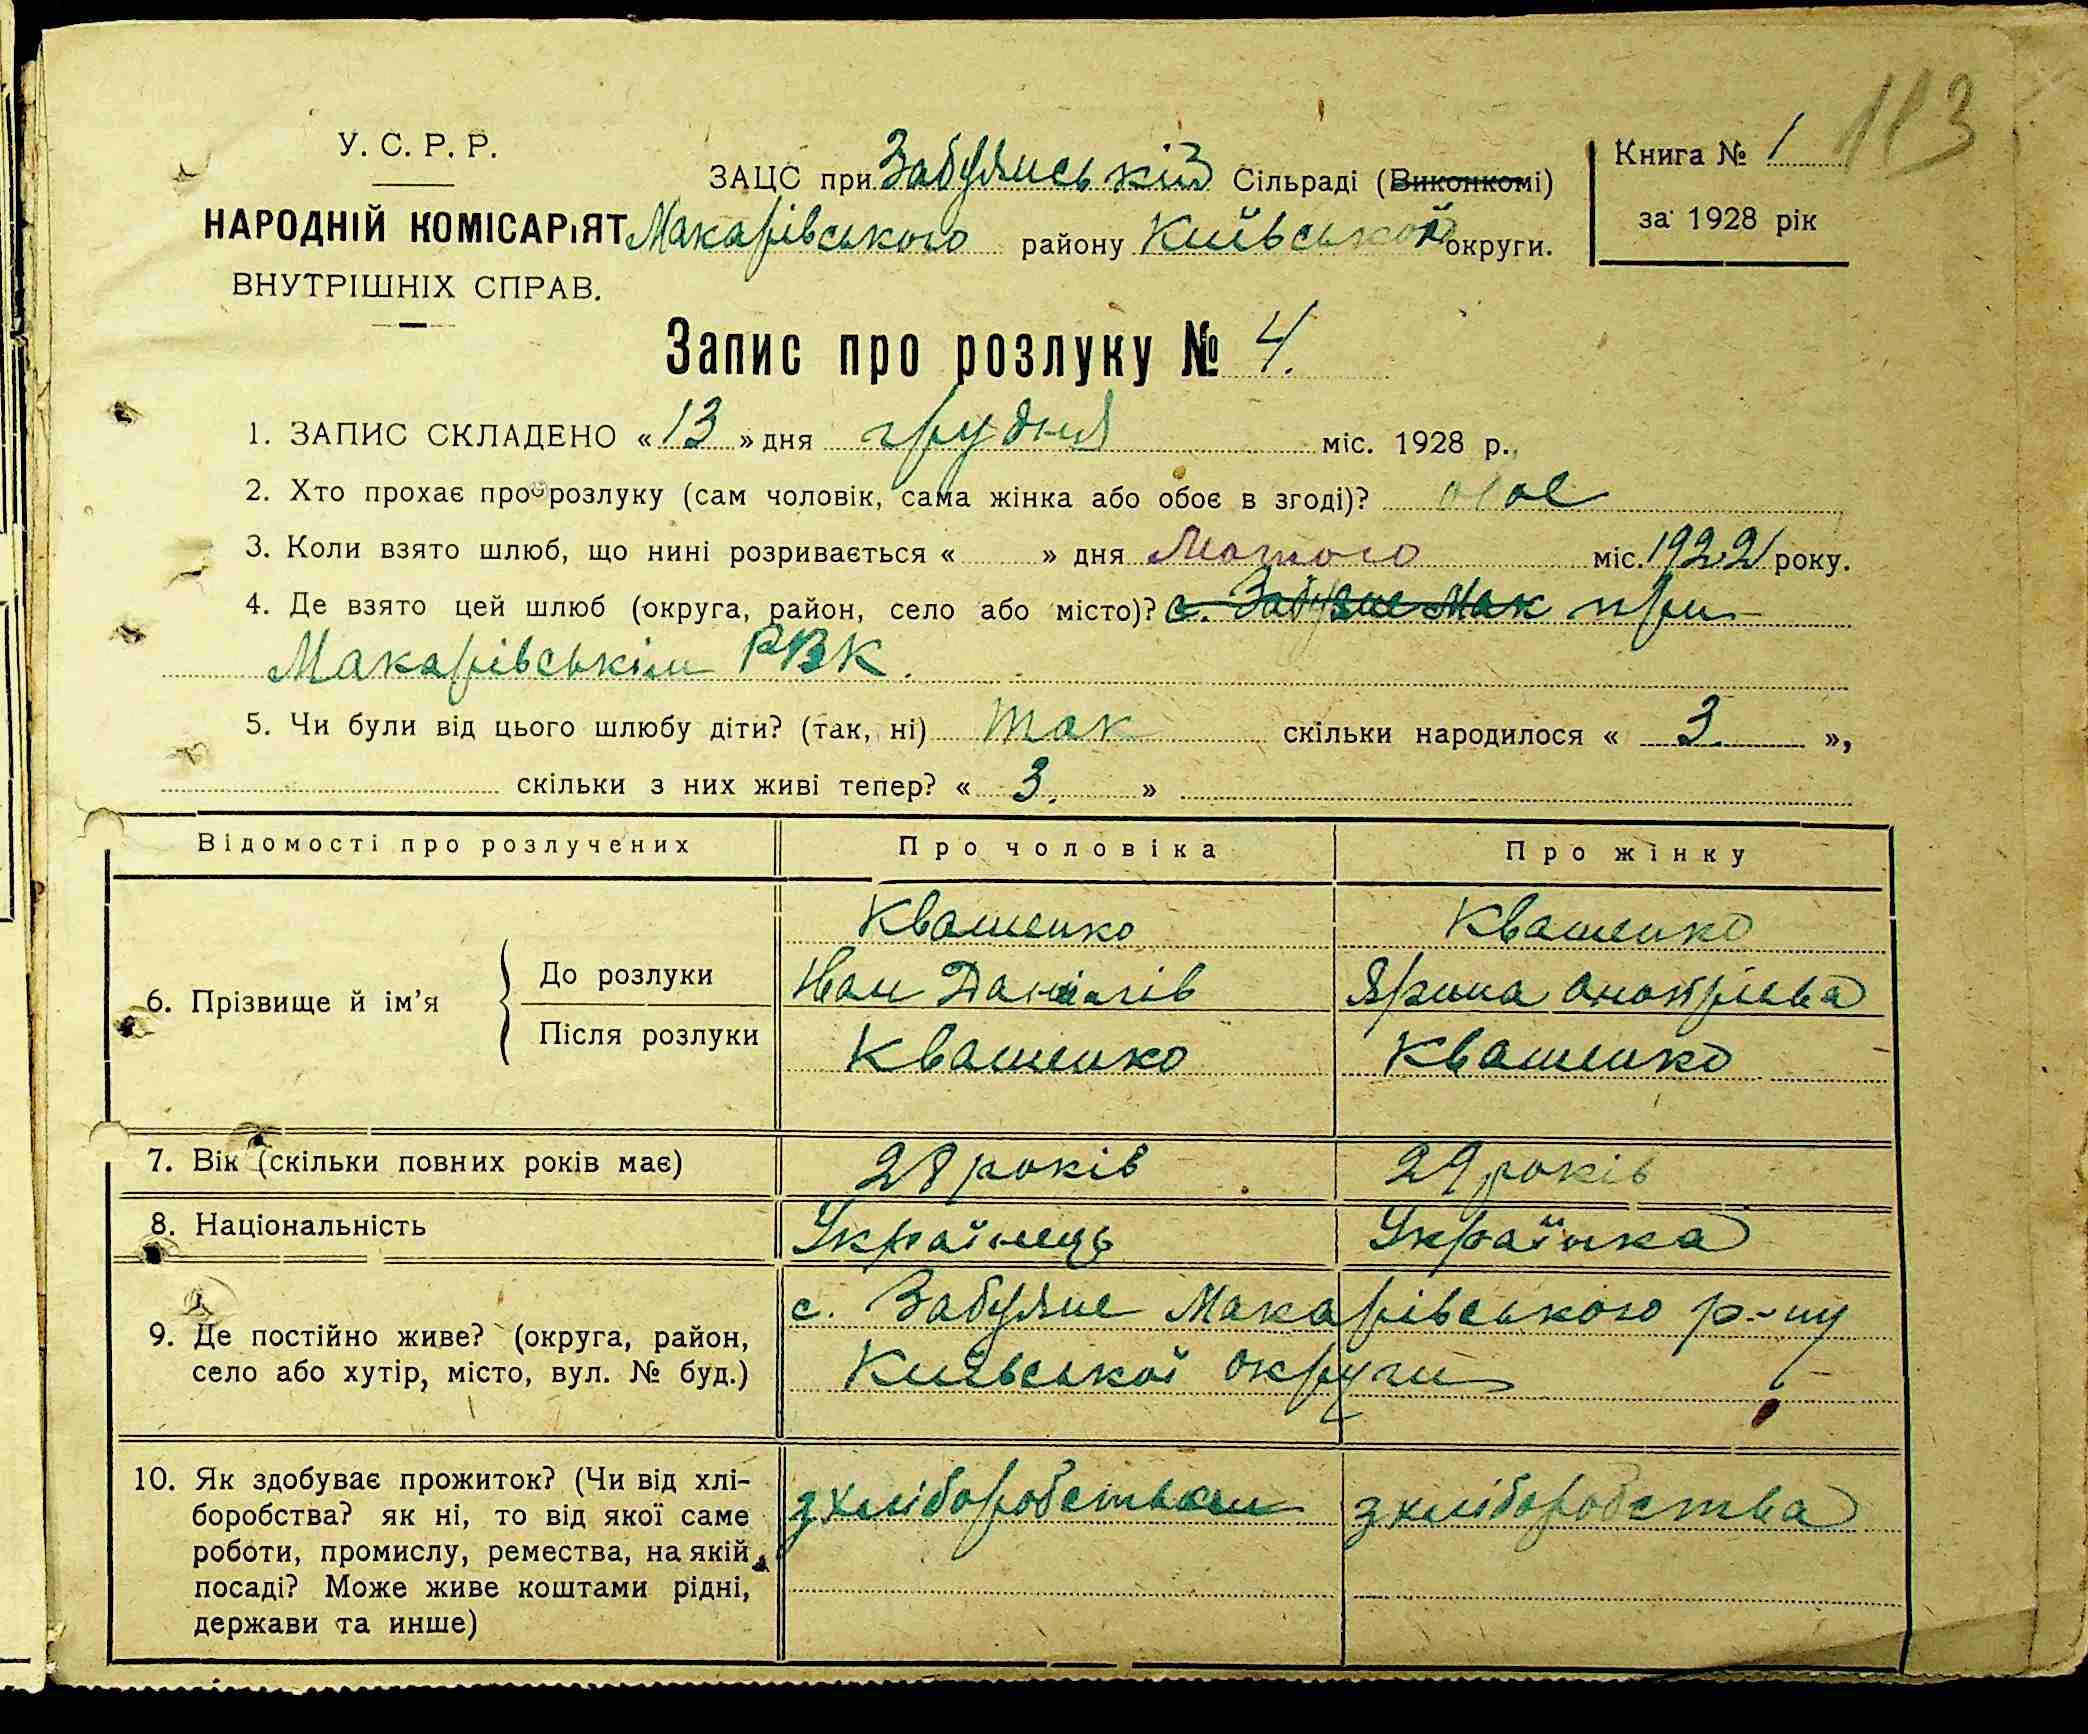 113
У. С. Р. Р.
ЗАЦС при Забуянській Сільраді (Виконкомі)
Книга № 1
НАРОДНІЙ КОМІСАРіЯТ Макарівського району Київської округи.
за 1928 рік
ВНУТРІШНІХ СПРАВ.
Запис про розлуку № 4.
1. ЗАПИС СКЛАДЕНО « 13 » дня грудня міс. 1928 р.
2. Хто прохає про розлуку (сам чоловік, сама жінка або обоє в згоді)? обоє
3. Коли взято шлюб, що нині розривається « » дня Лютого міс. 1922 року.
4. Де взято цей шлюб (округа, район, село або місто)? с. Забуянє Мак при
Макарівськім РВК.
5. Чи були від цього шлюбу діти? (так, ні) так скільки народилося « 3. »,
скільки з них живі тепер? « 3. »
Відомості про розлучених Про чоловіка Про жінку
Квашенко Квашенко
6. Прізвище й ім’я До розлуки Іван Данилів Ярина Онопрієва
Після розлуки Квашенко Квашенко
7. Вік (скільки повних років має) 28 років 29 років
8. Національність Українець Українка
9. Де постійно живе? (округа, район, с. Забуянє Макарівського р-ну
село або хутір, місто, вул. № буд.) Київської округи
10. Як здобуває прожиток? (Чи від хлі- з хліборобством з хліборобства
боробства? як ні, то від якої саме
роботи, промислу, ремества, на якій
посаді? Може живе коштами рідні,
держави та инше)